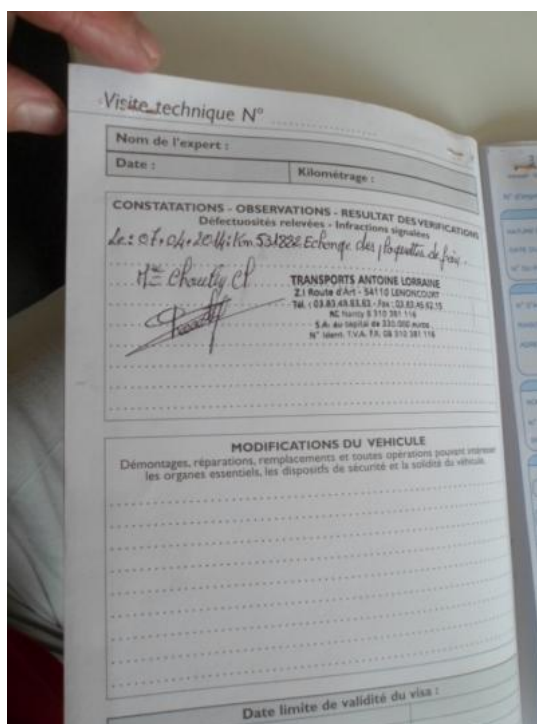 Visite technique N°
Nom de l'expert :
Date :
Kilométrage :
CONSTATATIONS - OBSERVATIONS - RESULTAT DES VERIFICATIONS
Défectuosités relevées - Infractions signalées
Le : 07.04.2014 : Km 531222 Echange des plaquettes de frein.
TRANSPORTS ANTOINE LORRAINE
Z.I Route d'Art - 54110 LENONCOURT
S.A. au capital de 330.000 euros
MODIFICATIONS DU VEHICULE
Démontages, réparations, remplacements et toutes opérations pouvant intéresser
les organes essentiels, les dispositifs de sécurité et la solidité du véhicule.
Date limite de validité du visa :